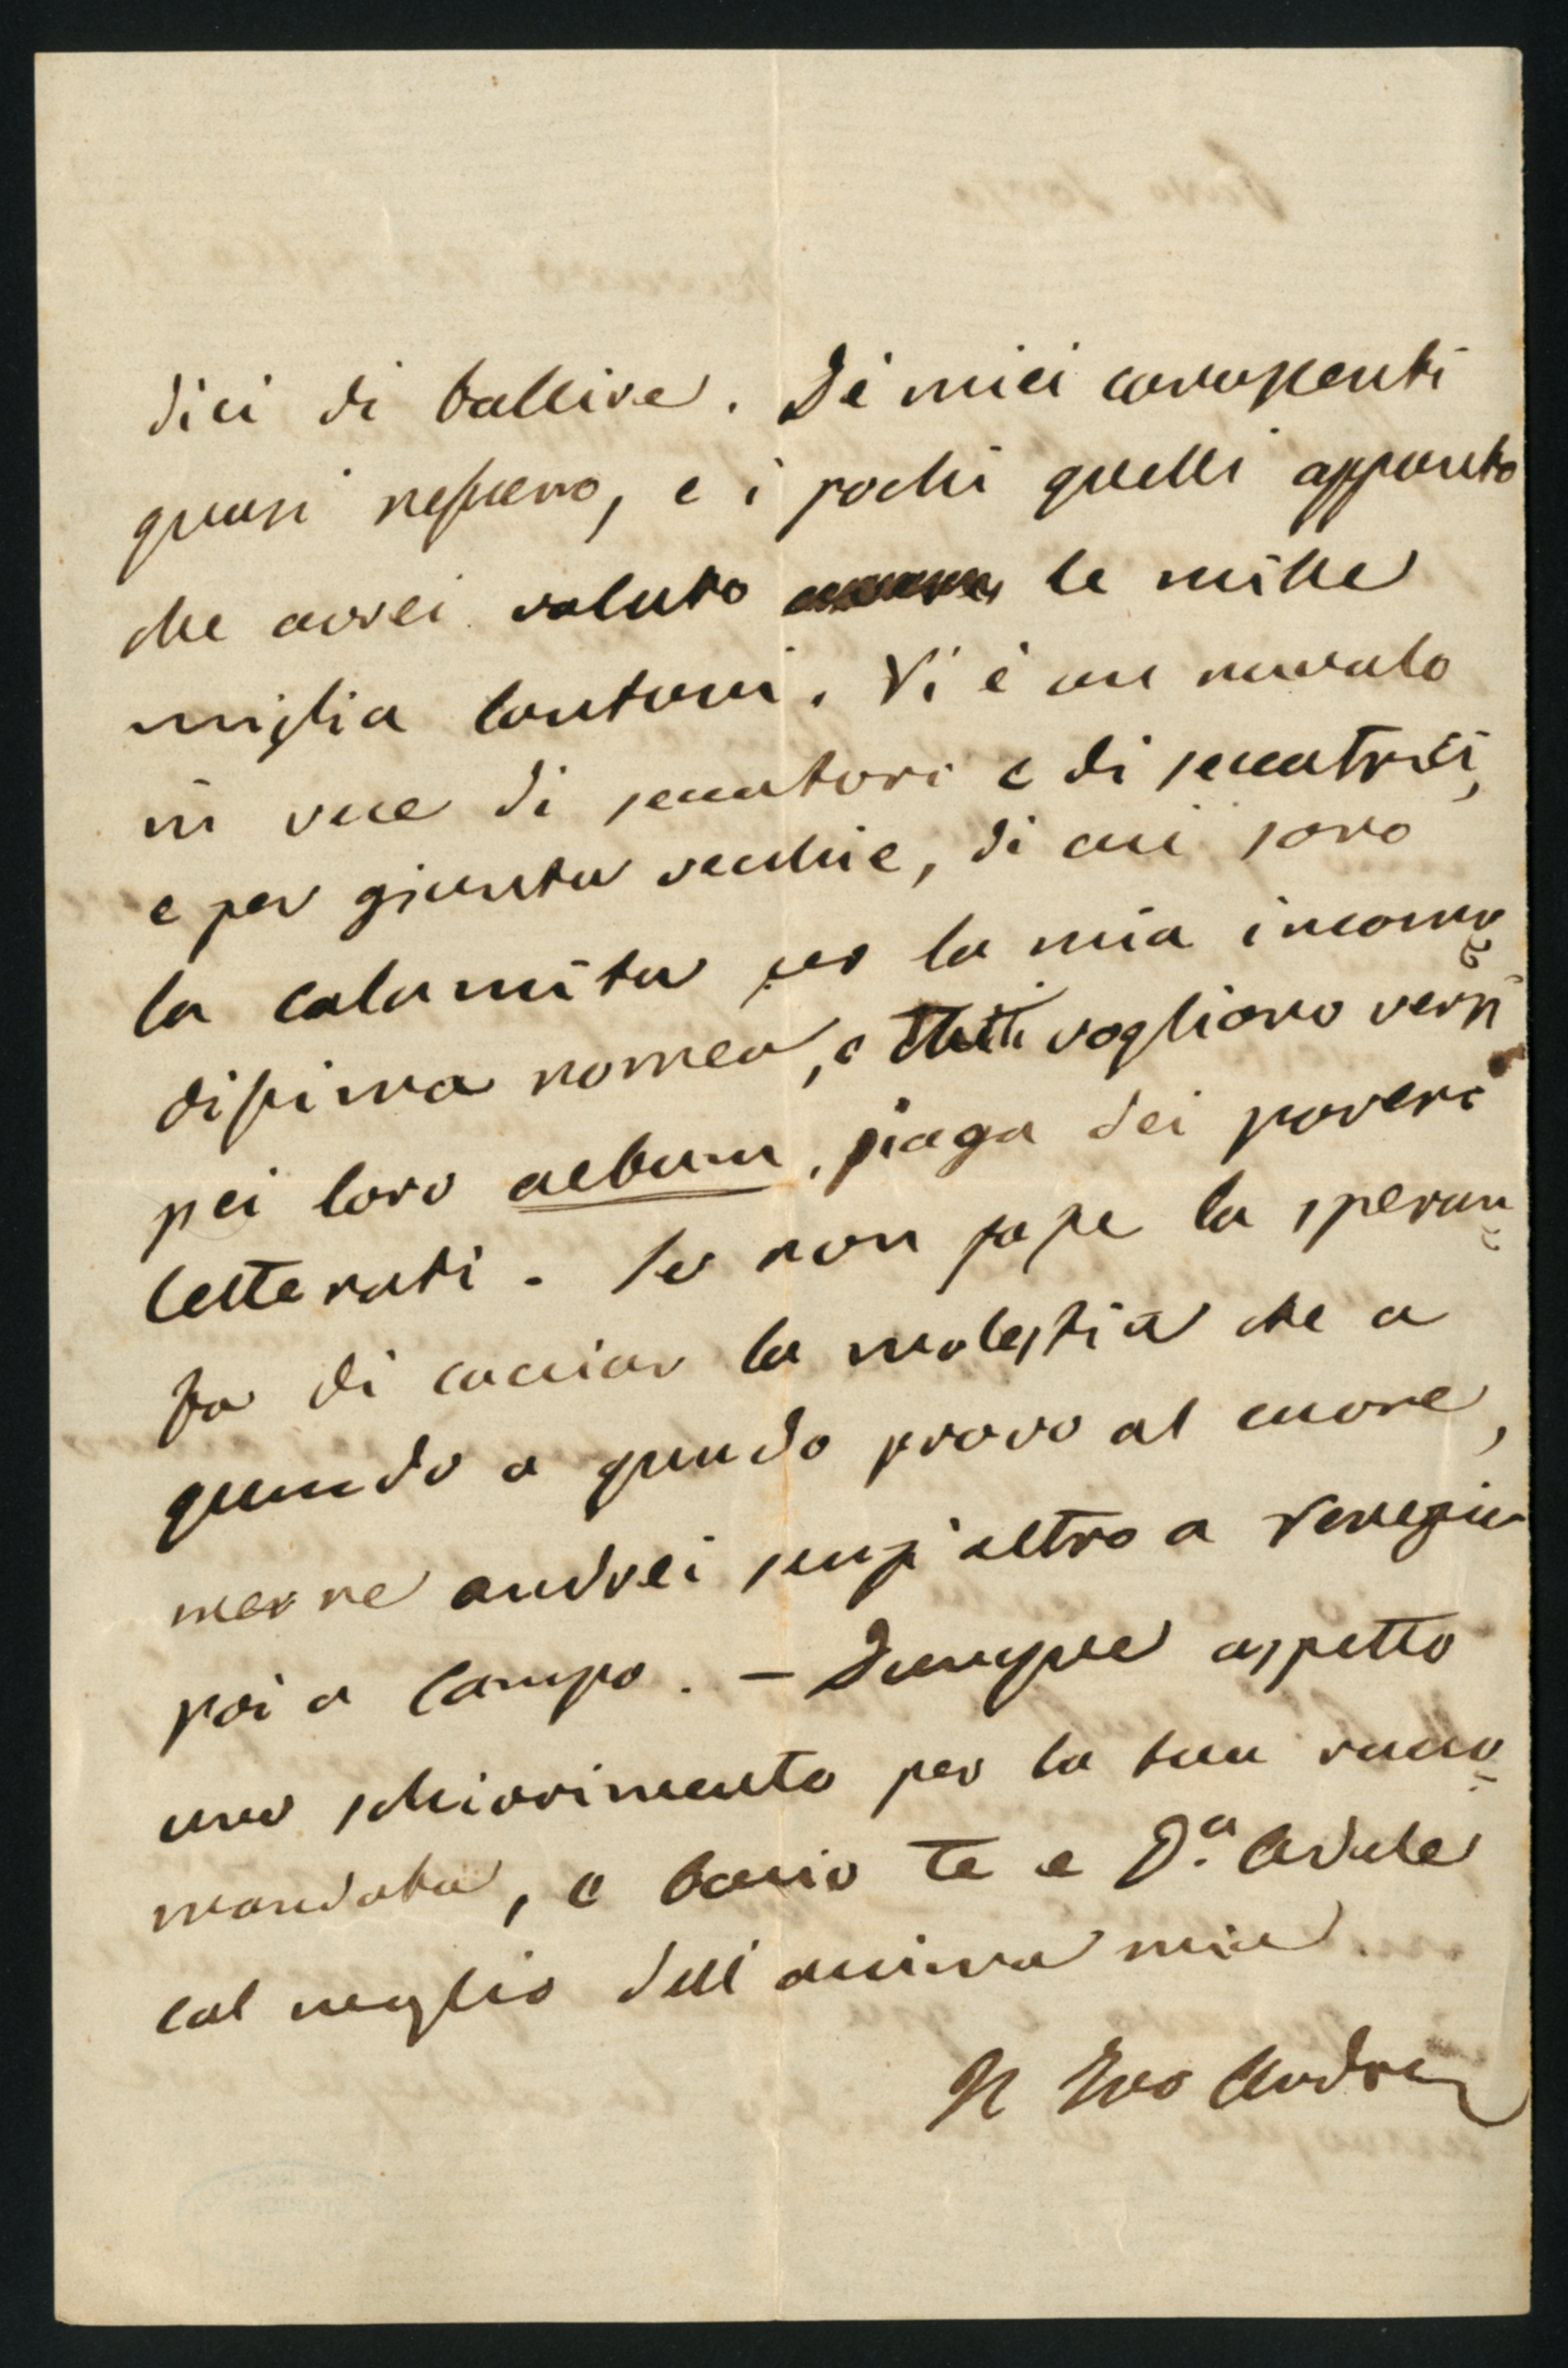 dici di bollire. De' miei conoscenti
quasi nessuno, e i pochi quelli appunto
che avrei voluto le mille
miglia lontani. Vi è un nuvolo
in vece di seccatori e di seccatrici,
e per giunta vecchie, di cui sono
la calamita per la mia incomo
dissima nomea, e tutti vogliono versi
pei loro album, piaga dei poveri
letterati. Se non fosse la speran
za di cacciar la molestia che a
quando a quando provo al cuore,
me ne andrei senz'altro a Venezia
poi a Campo. – Dunque aspetto
uno schiarimento per la tua racco
mandata, e bacio te e D.a Adele
col meglio dell'anima mia
Il Tuo Andrea